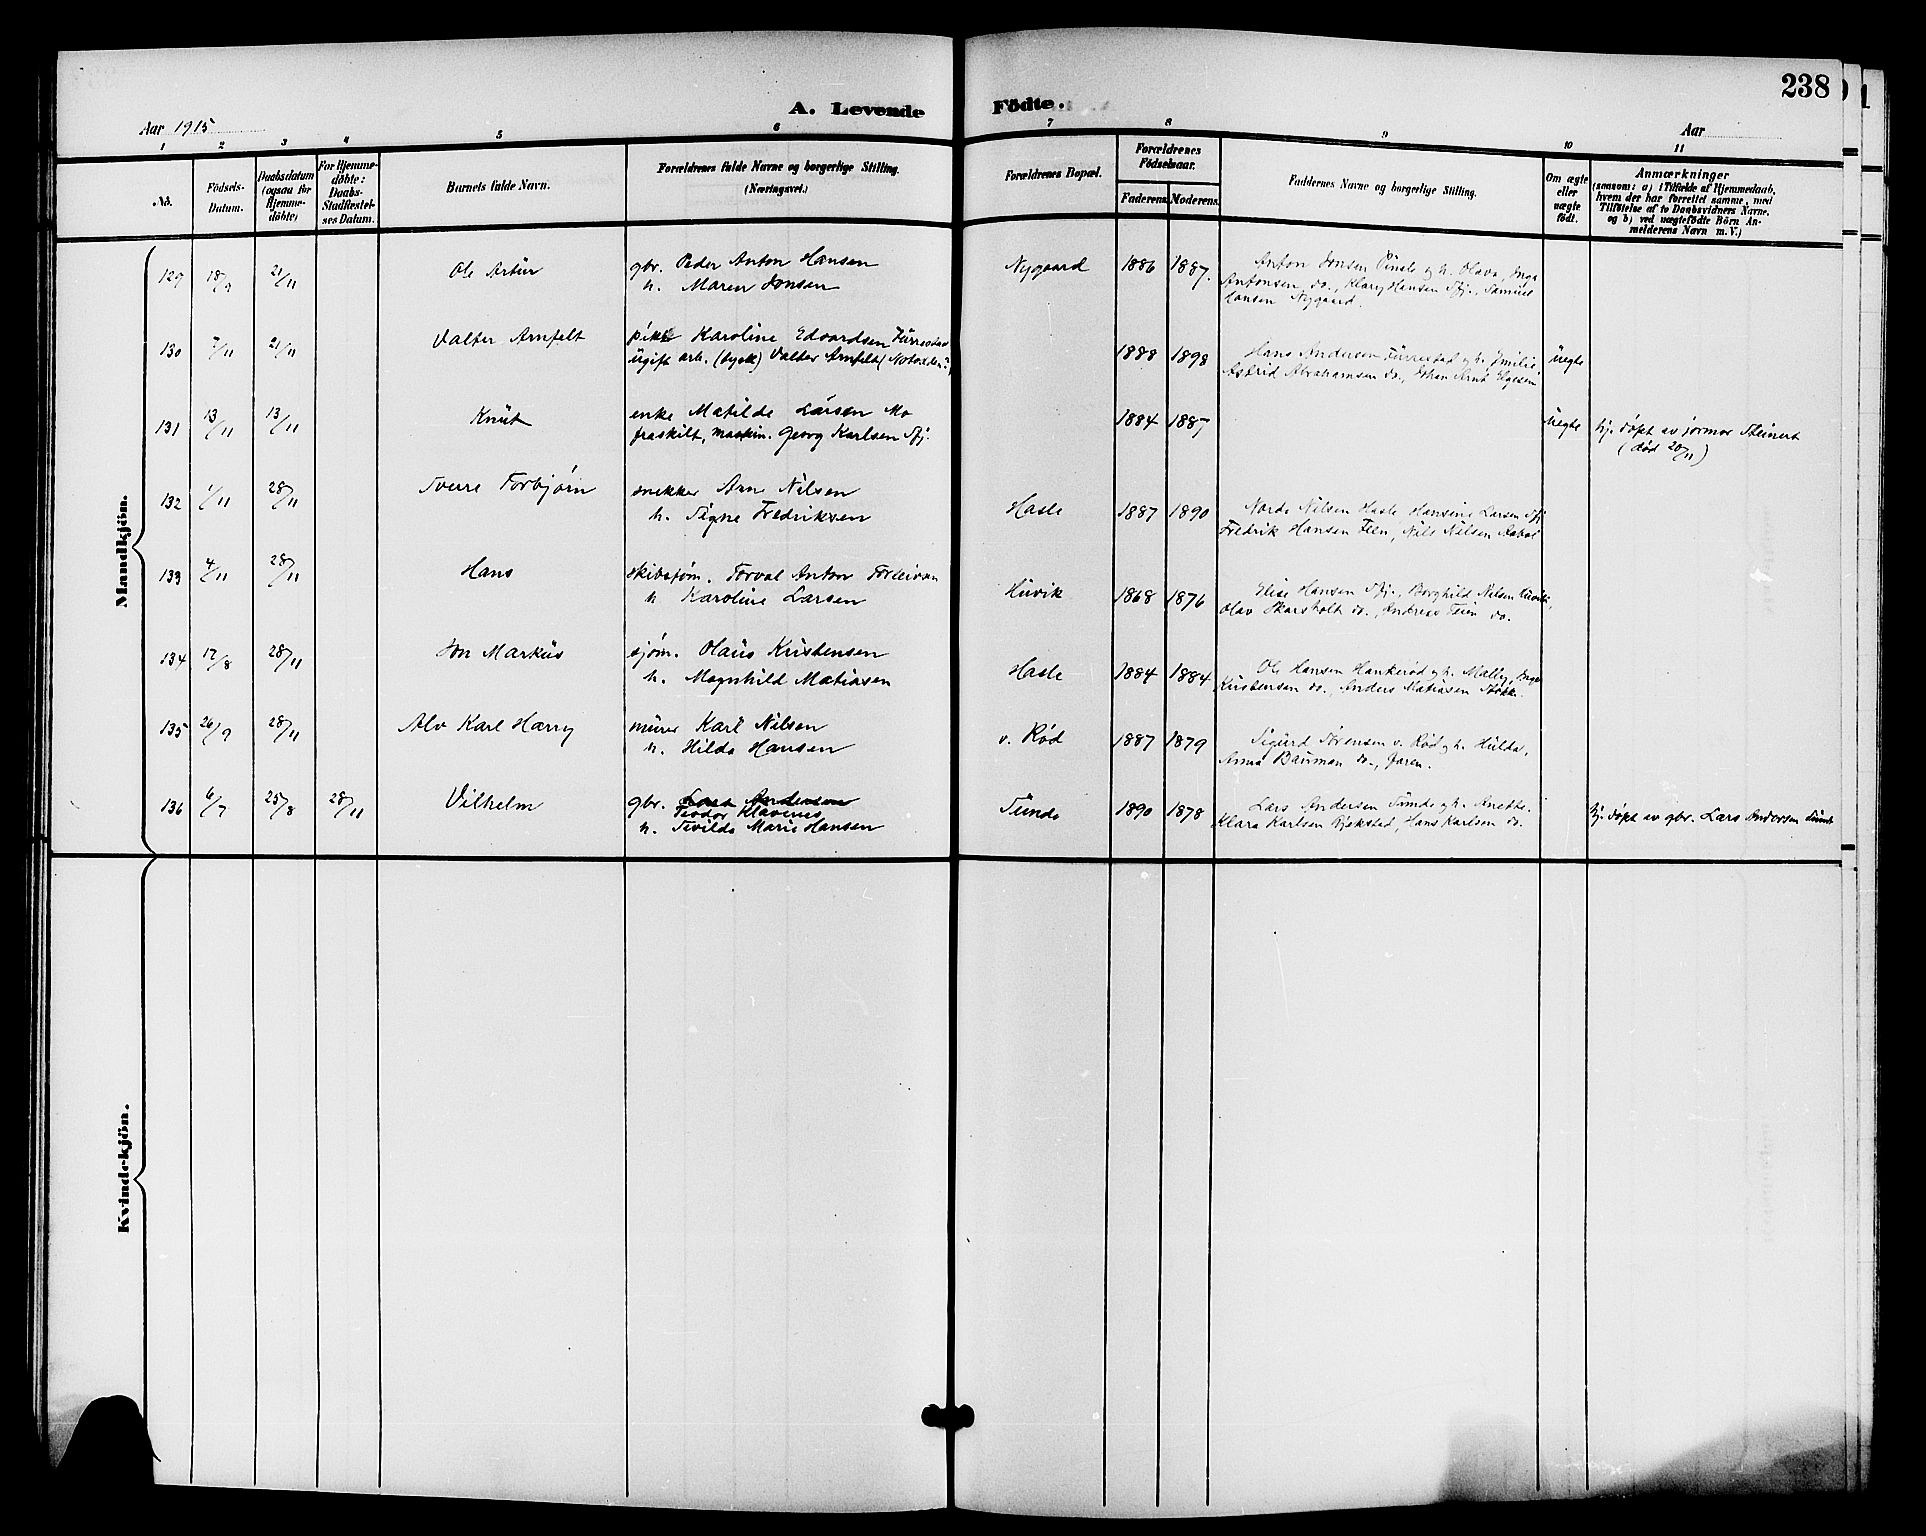 238
A. Levende Födte.
Aar 1915
Aar
1 2 3 4 5 6 7 8 9 10 11
No.
Födsels-Datum.
Daabsdatum (ogsaa for Hjemmedöbte)
For Hjemmedöbte: Daabs-Stadfæstelses Datum.
Barnets fulde Navn.
Forældrenes fulde Navne og borgerlige Stilling.
(Næringsvei.)
Forældrenes Bopæl.
Forældrenes Födselsaar.
Faderens. Moderens.
Faddernes Navne og borgerlige Stilling.
Om ægte eller uægte födt.
Anmærkninger
(saasom: a) i Tilfælde af Hjemmedaab,
hvem der har forrettet samme, med
Tilföielse af to Daabsvidners Navne,
og b) ved uægtefödte Börn An-
melderens Navn m. V.)
Mandkjön.
129 18/9 21/11 Ole Artur gbr. Peder Anton Hansen Nygaard 1886 1887. Anton Jonsen og h. Olava, Inga
h. Maren Jonsen Antonsen do., Klary Hansen Sfj., Samuel
Hansen Nygaard.
130 7/11 21/11 Valter Arnfelt pike Karoline Edvardsen Furrestad 1888 1898 Hans Andersen Furrestad og h. Emilie, uegte
ugift arb. (tysk) Valter Arnfelt Astrid Abrahamsen do., Johan Arnt
131 13/11 13/11 Knut enke Matilde Larsen Mo 1884 1887 uegte hj. døpt av jormor Steinert
fraskilt, maskin. Georg Karlsen Sfj. (død 20/11)
132 1/11 28/11 Sverre Torbjørn snekker Arne Nilsen Hasle 1887 1890 Nilsen Hasle Hansine Larsen Sfj
h. Signe Fredriksen Fredrik Hansen Feen, Nils Nilsen
133 4/11 28/11 Hans skibstøm. Torval Anton Huvik 1868 1876 Elise Hansen Sfj., Borghild Nilsen Huvik,
h. Karoline Larsen Olav Skarsholt do., Andreas do.
134 17/8 28/11 Jon Markus sjøm. Olaus Kristensen Hasle 1884 1884 Ole Hansen Hankerød og h. Mally,
h. Magnhild Matiasen Kristensen do., Anders Matiasen Stokk.
135 26/9 28/11 Alv Karl Harry murer Karl Nilsen v. Rød 1887 1879 Sigurd Sørensen v. Rød og h. Hulda,
h. Hilda Hansen Anna Bauman do., faren.
136 6/7 25/8 28/11 Vilhelm gbr. Lars Andersen Sunde 1890 1878 Lars Andersen Sunde og h. Anette.
Teodor Klavenes
h. Tevilde Marie Hansen Klara Karlsen, Hans Karlsen do. hj. døpt av gbr. Lars Andersen Sunde
Kvindekjön.